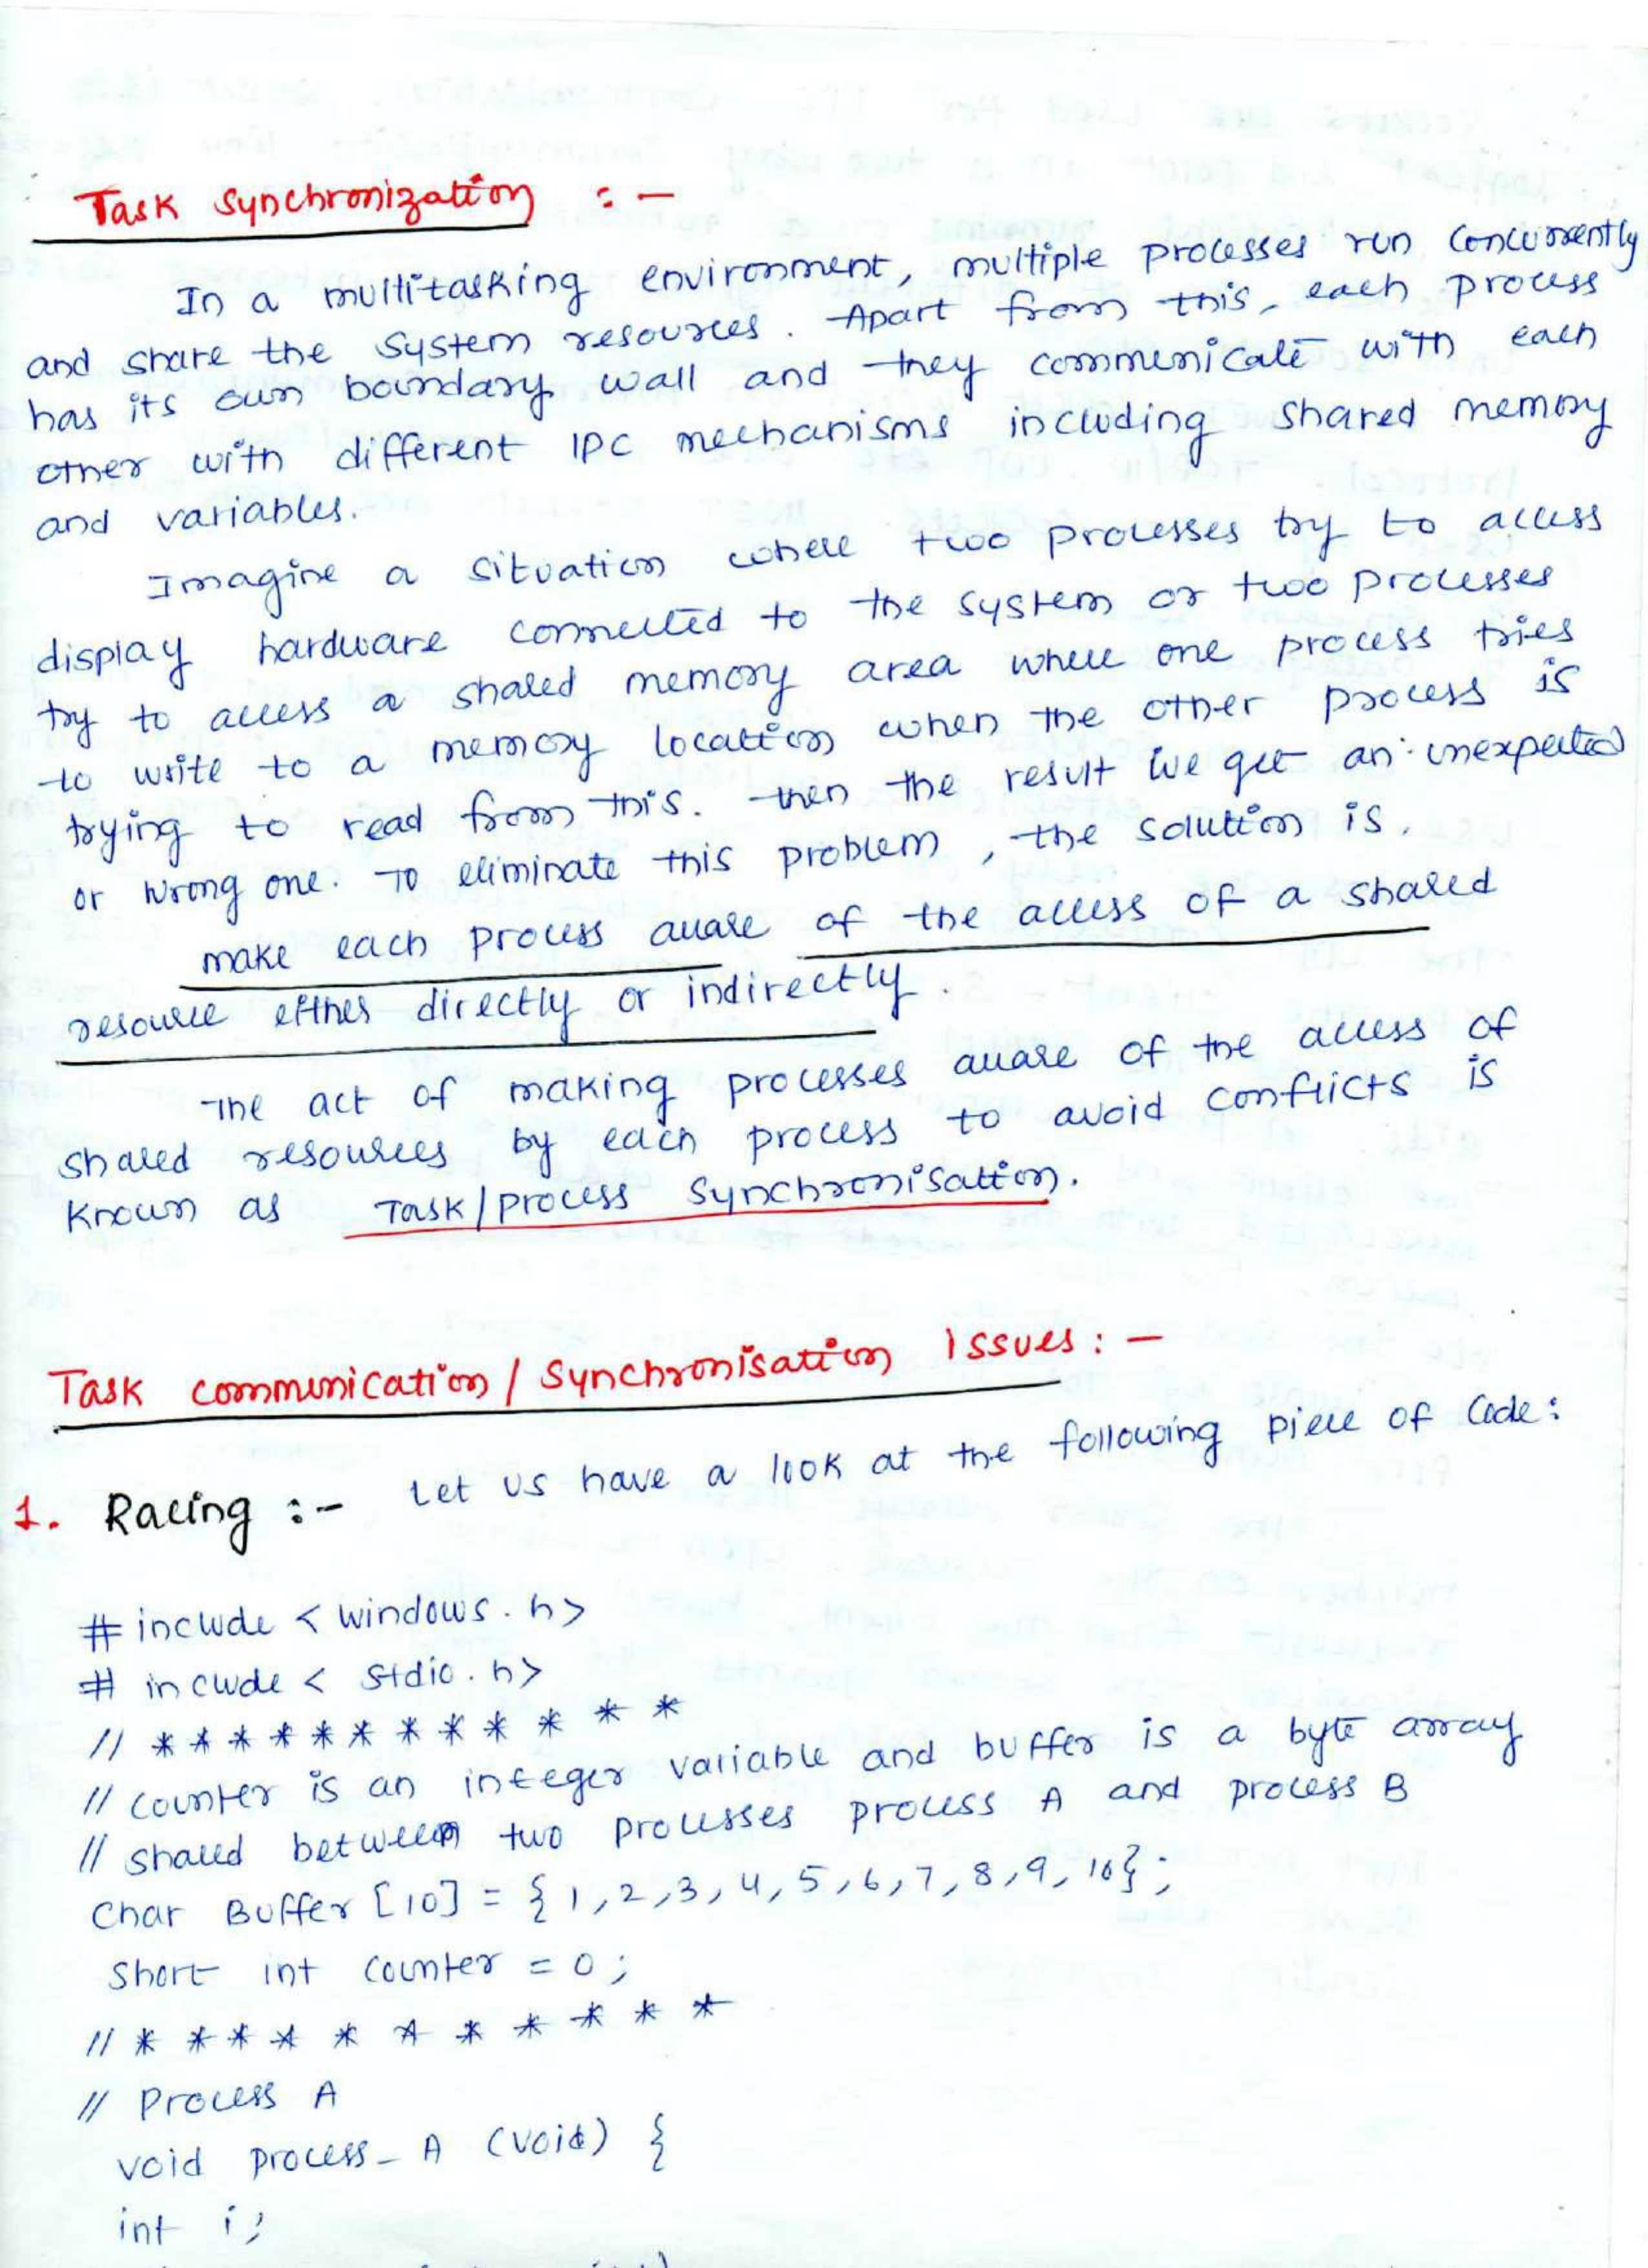 Task Synchronization : -
In a multitasking environment, multiple processes run concurrently
and share the system resources. Apart from this, each process
has its own boundary wall and they communicate with each
other with different IPC mechanisms including shared memory
and variables.
Imagine a situation where two processes try to access
display hardware connected to the system or two processes
try to access a shared memory area where one process tries
to write to a memory location when the other process is
trying to read from this. then the result we get an unexpected
or wrong one. To eliminate this problem, the solution is.
make each process aware of the access of a shared
resource either directly or indirectly.
The act of making processes aware of the access of
shared resources by each process to avoid conflicts is
known as Task/process Synchronisation.
Task communication / Synchronisation Issues: -
1. Racing :- Let us have a look at the following piece of code:
# include < windows.h>
# include < stdio.h>
// * * * * * * * * * * * *
// counter is an integer variable and buffer is a byte array
// shared between two processes process A and process B
Char Buffer [10] = { 1,2,3,4,5,6,7,8,9,10};
Short int counter = 0;
// * * * * * * * * * * *
// Process A
void process_A (void) {
int i;